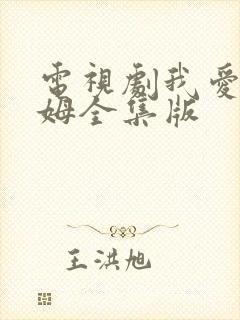 電視劇我愛
姆全集版
王洪旭